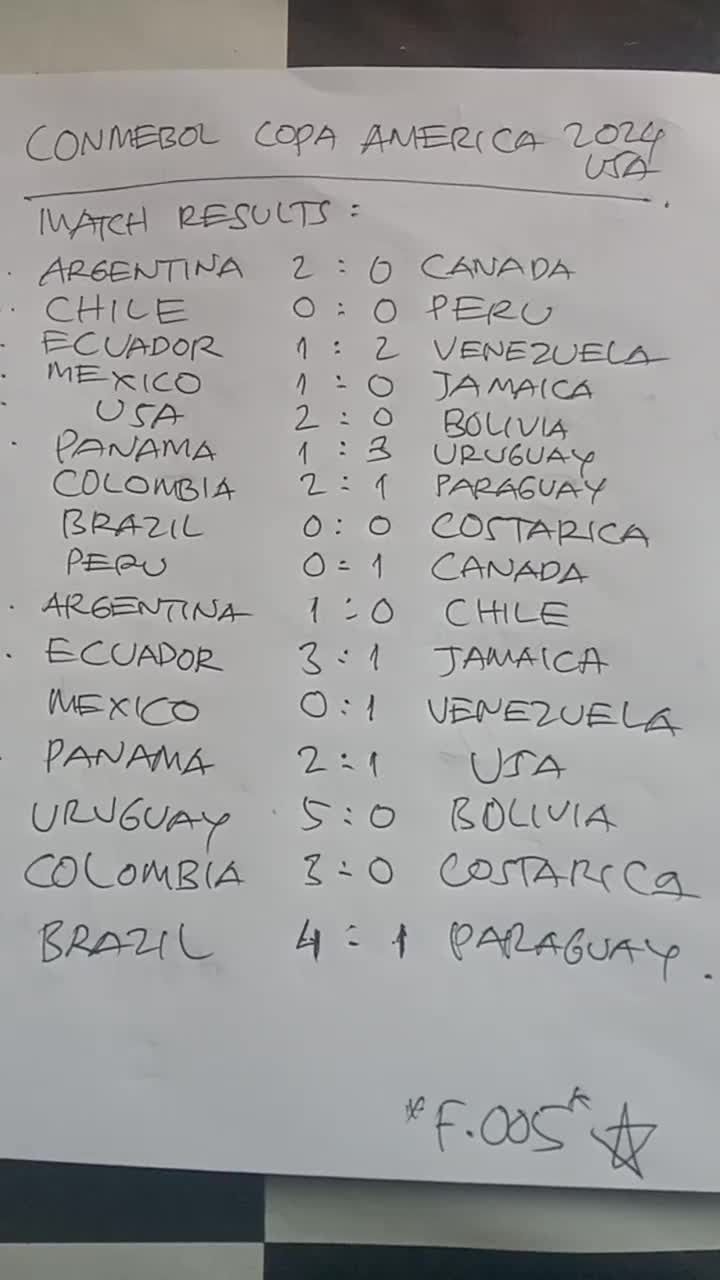 CONMEBOL COPA AMERICA 2024
USA
MATCH RESULTS :
ARGENTINA 2 : 0 CANADA
CHILE 0 : 0 PERU
ECUADOR 1 : 2 VENEZUELA
MEXICO 1 : 0 JAMAICA
USA 2 : 0 BOLIVIA
PANAMA 1 : 3 URUGUAY
COLOMBIA 2 : 1 PARAGUAY
BRAZIL 0 : 0 COSTARICA
PERU 0 = 1 CANADA
ARGENTINA 1 : 0 CHILE
ECUADOR 3 : 1 JAMAICA
MEXICO 0 : 1 VENEZUELA
PANAMA 2 : 1 USA
URUGUAY 5 : 0 BOLIVIA
COLOMBIA 3 : 0 COSTARICA
BRAZIL 4 : 1 PARAGUAY.
*F.005* ☆